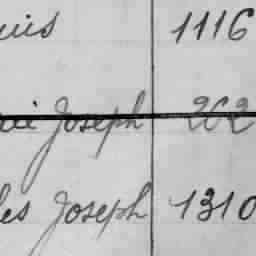 uis 1116
Joseph 262
les Joseph 1310